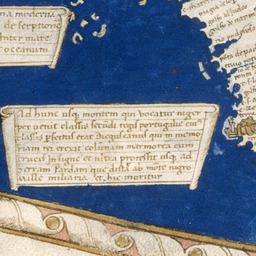 na moderna
de scriptione
inter mare
oceanum
Ad hunc usq montem qui vocatur niger
per venit classis secūdi regis portugalie cui⁹
classis pfectus erat diegus canus qui in memo
riam rei erexit colunam marmorea cum
crucis in signe et ultra processit usq ad
serram Pardam que distat ab mōte nigro
mille miliaria et hic moritur